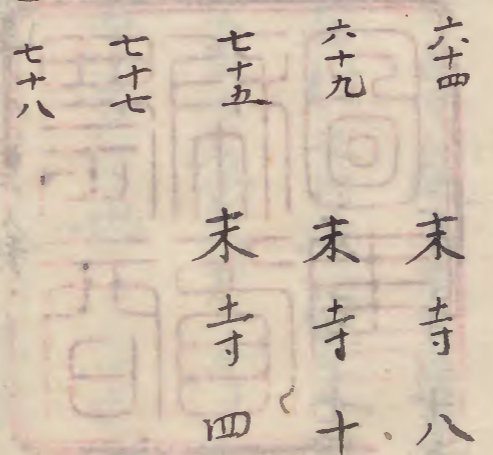 六十四 末寺八
六十九 末寺十
七十五 末寺四
七十七
七十八